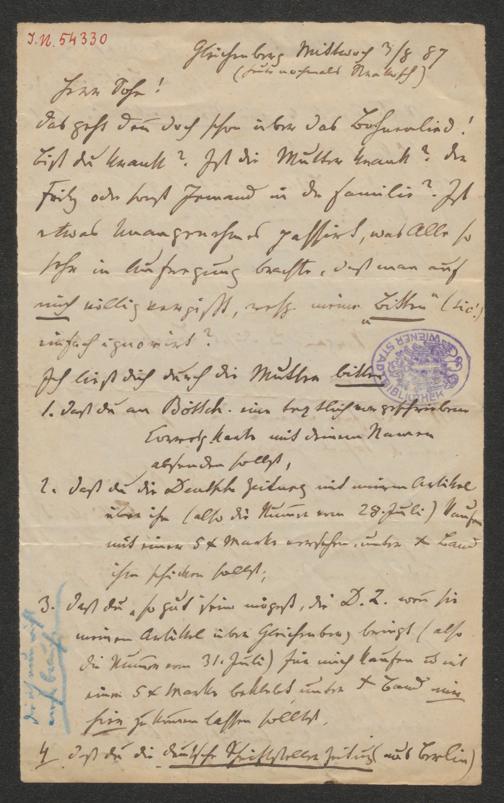 J.N. 54330
Gleichenberg Mittwoch 3/8 87
Herr Sohn!
Das geht denn doch schon über das Bohnenlied!
Bist du krank? Ist die Mutter krank? Der
Fritz oder sonst Jemand in der Familie? Ist
etwas Unangenehmes passirt, was Alle so
sehr in Aufregung brachte, daß man auf
mich völlig vergißt, resp. meine „Bitten" (sic!)
einfach ignorirt?
Ich ließ dich durch die Mutter bitten
WIENER STADTBIBLIOTHEK
1. daß du an Böttch. eine vorgeschriebene
Correspkarte mit deinem Namen
absenden sollst,
2. daß du die Deutsche Zeitung mit meinem Artikel
über ihn (also die Numer vom 28. Juli) kaufen
mit einer 5 x Marke versehen, unter x Band
ihm schicken sollst;
3. daß du so gut sein mögest, die D. Z. wenn sie
meinen Artikel über Gleichenberg bringt (also
die Numer vom 31. Juli) für mich kaufen und mit
einer 5 x Marke beklebt unter x Band mir
zukommen lassen solltest,
4 daß du die deutsche Schriftsteller Zeitung (aus Berlin)